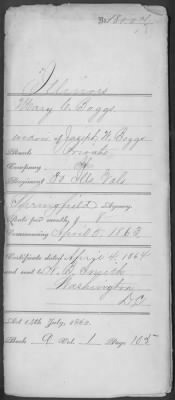 No 18004
Illinois
Mary C. Boggs
widow of Joseph W. Boggs
Rank Private
Company H
Regiment Ills Vols
Springfield Agency.
Rate per month, $ 8
Commencing April 1863
Certificate dated April 4, 1864
and sent to
Washington
D.C.
Act 14th July, 1862.
Book 9 Vol. 1 Page 105